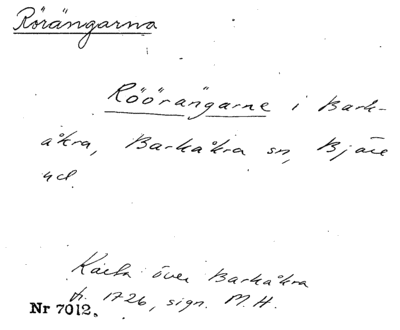 Rörängarna
Röörängarne i Bark-
åkra, Barkåkra sn, Bjäre
hd.
Karta över Barkåkra
fr. 1726, sign. M.H.
Nr 7012.